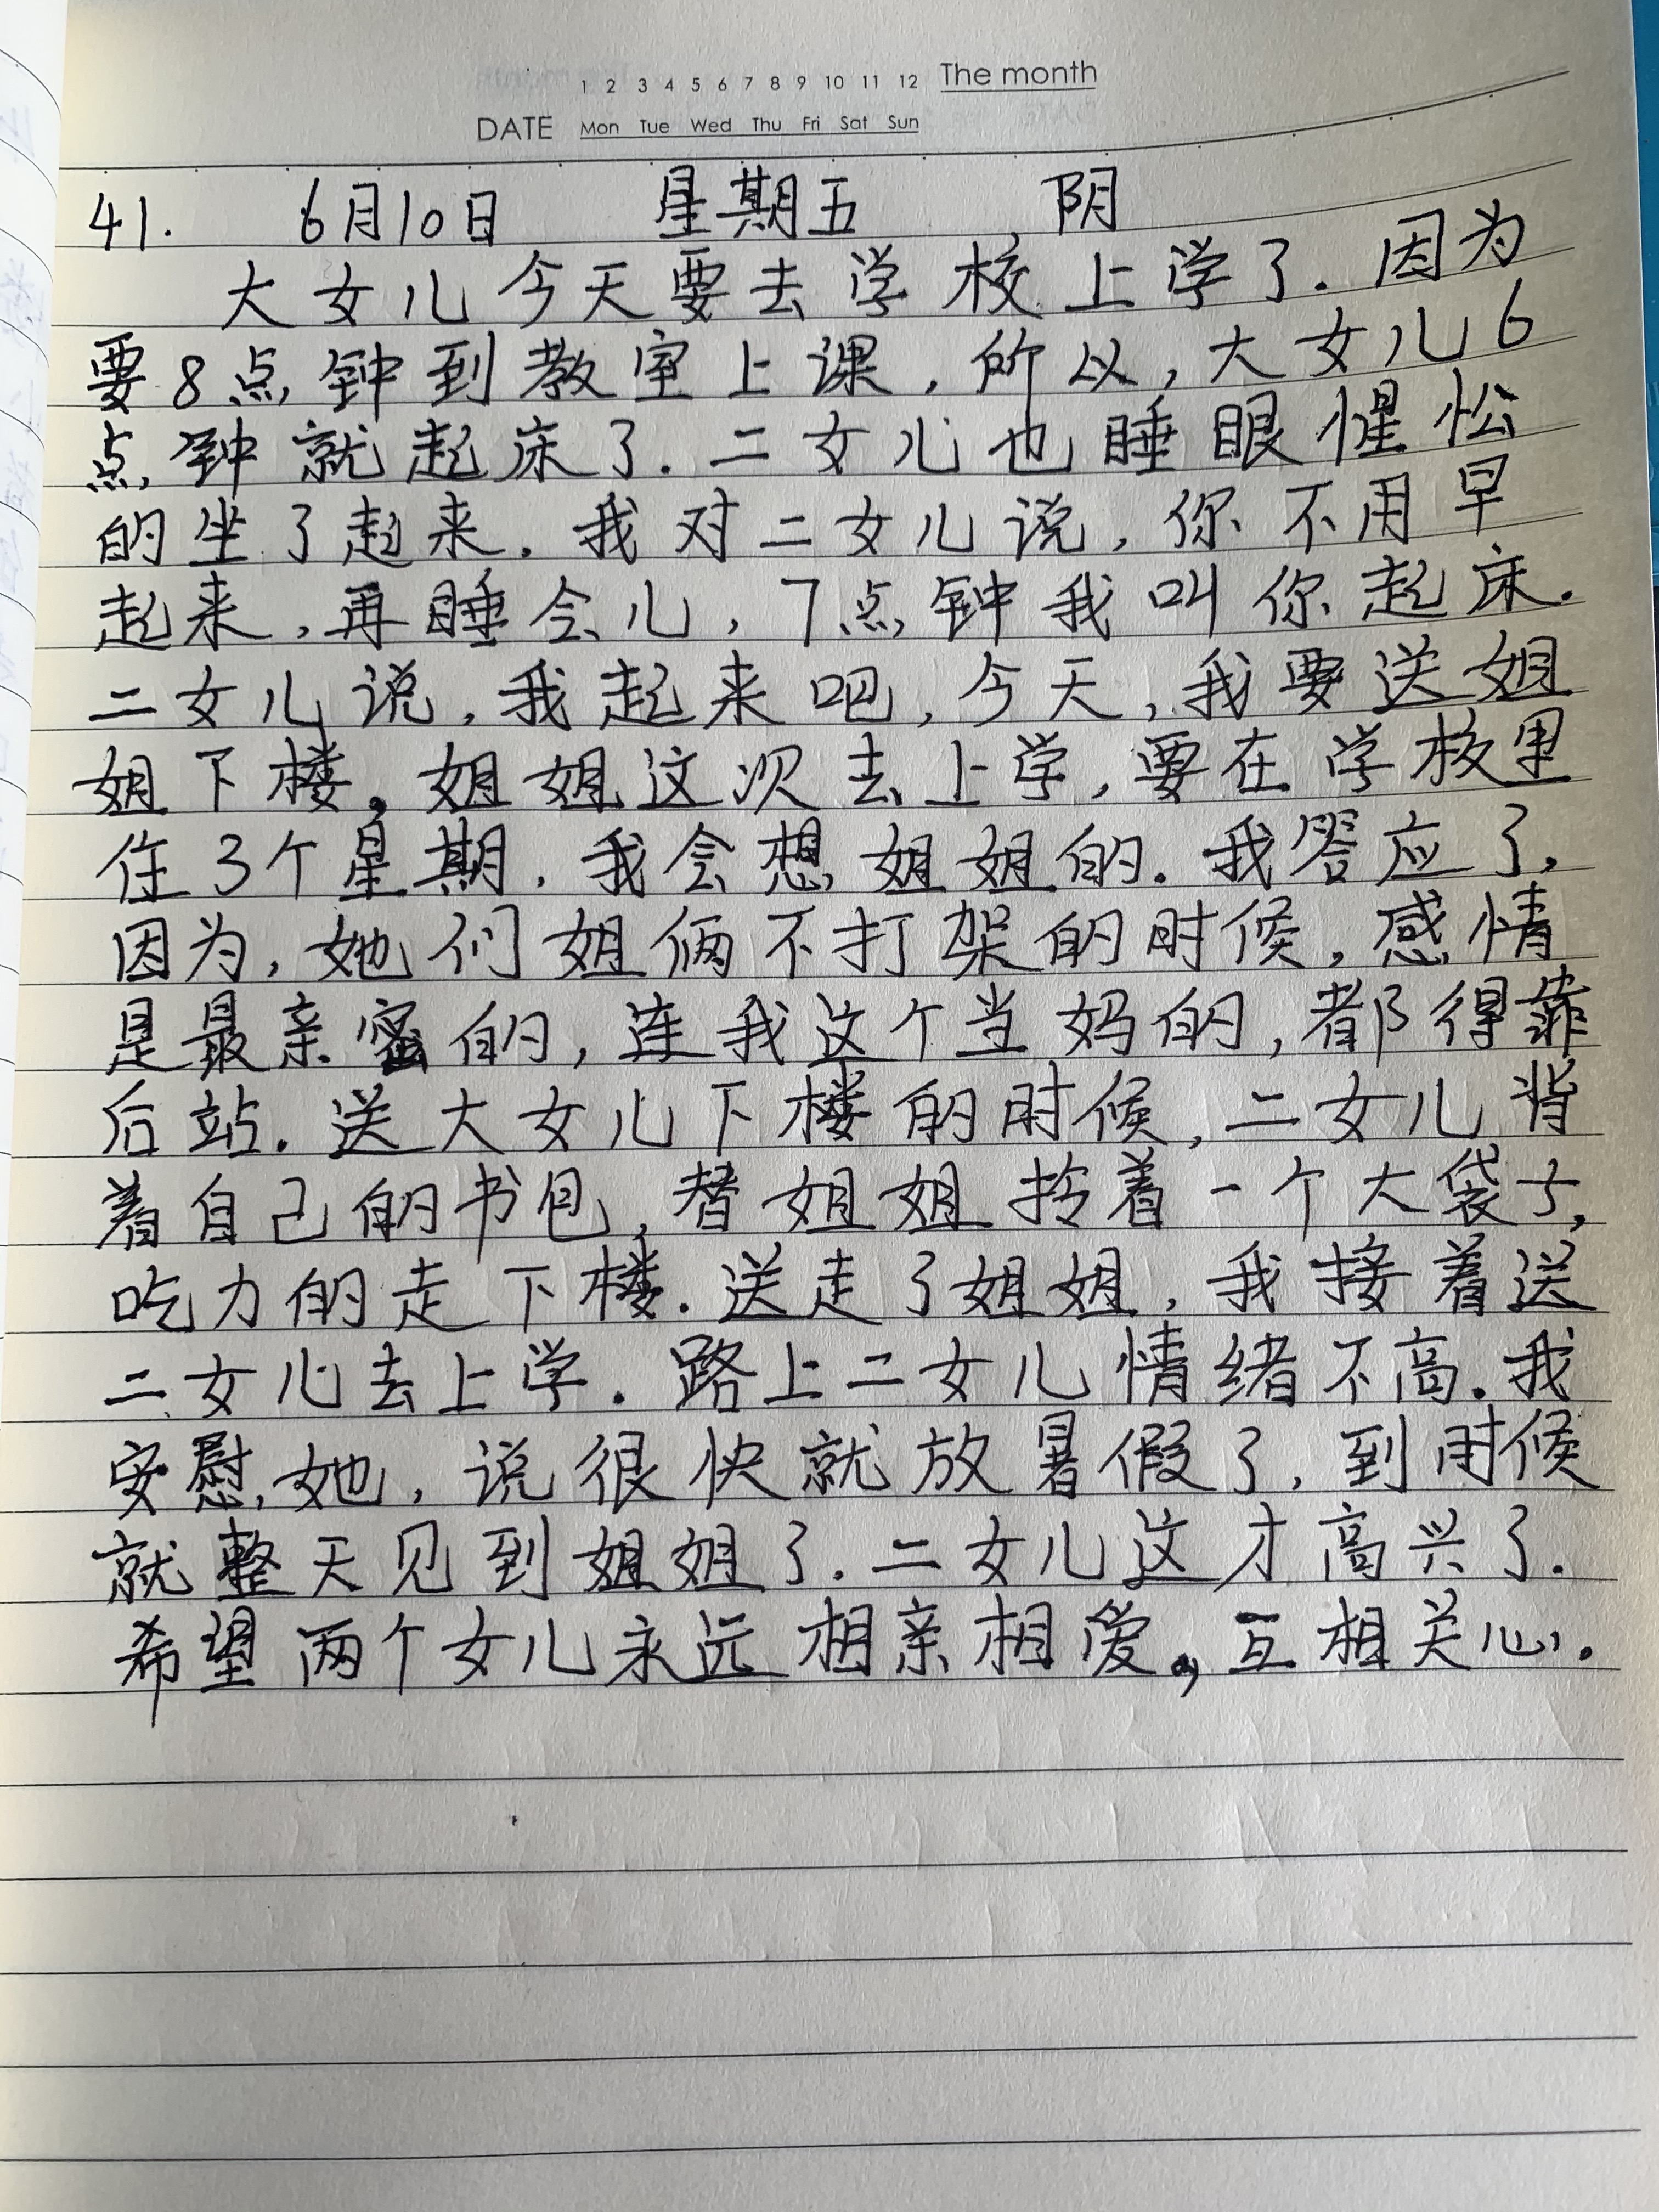 1 2 3 4 5 6 7 8 9 10 11 12 The month
DATE Mon Tue Wed Thu Fri Sat Sun
41. 6月10日 星期五 阴
大女儿今天要去学校上学了.因为
要8点钟到教室上课,所以,大女儿6
点钟就起床了.二女儿也睡眼惺忪
的坐了起来.我对二女儿说,你不用早
起来,再睡会儿,7点钟我叫你起床.
二女儿说,我起来吧,今天,我要送姐
姐下楼,姐姐这次去上学,要在学校里
住3个星期,我会想姐姐的.我答应了,
因为,她们姐俩不打架的时候,感情
是最亲蜜的,连我这个当妈的,都得靠
后站.送大女儿下楼的时候,二女儿背
着自己的书包,替姐姐拎着一个大袋子,
吃力的走下楼.送走了姐姐,我接着送
二女儿去上学.路上二女儿情绪不高.我
安慰她,说很快就放暑假了,到时候
就整天见到姐姐了.二女儿这才高兴了.
希望两个女儿永远相亲相爱,互相关心.